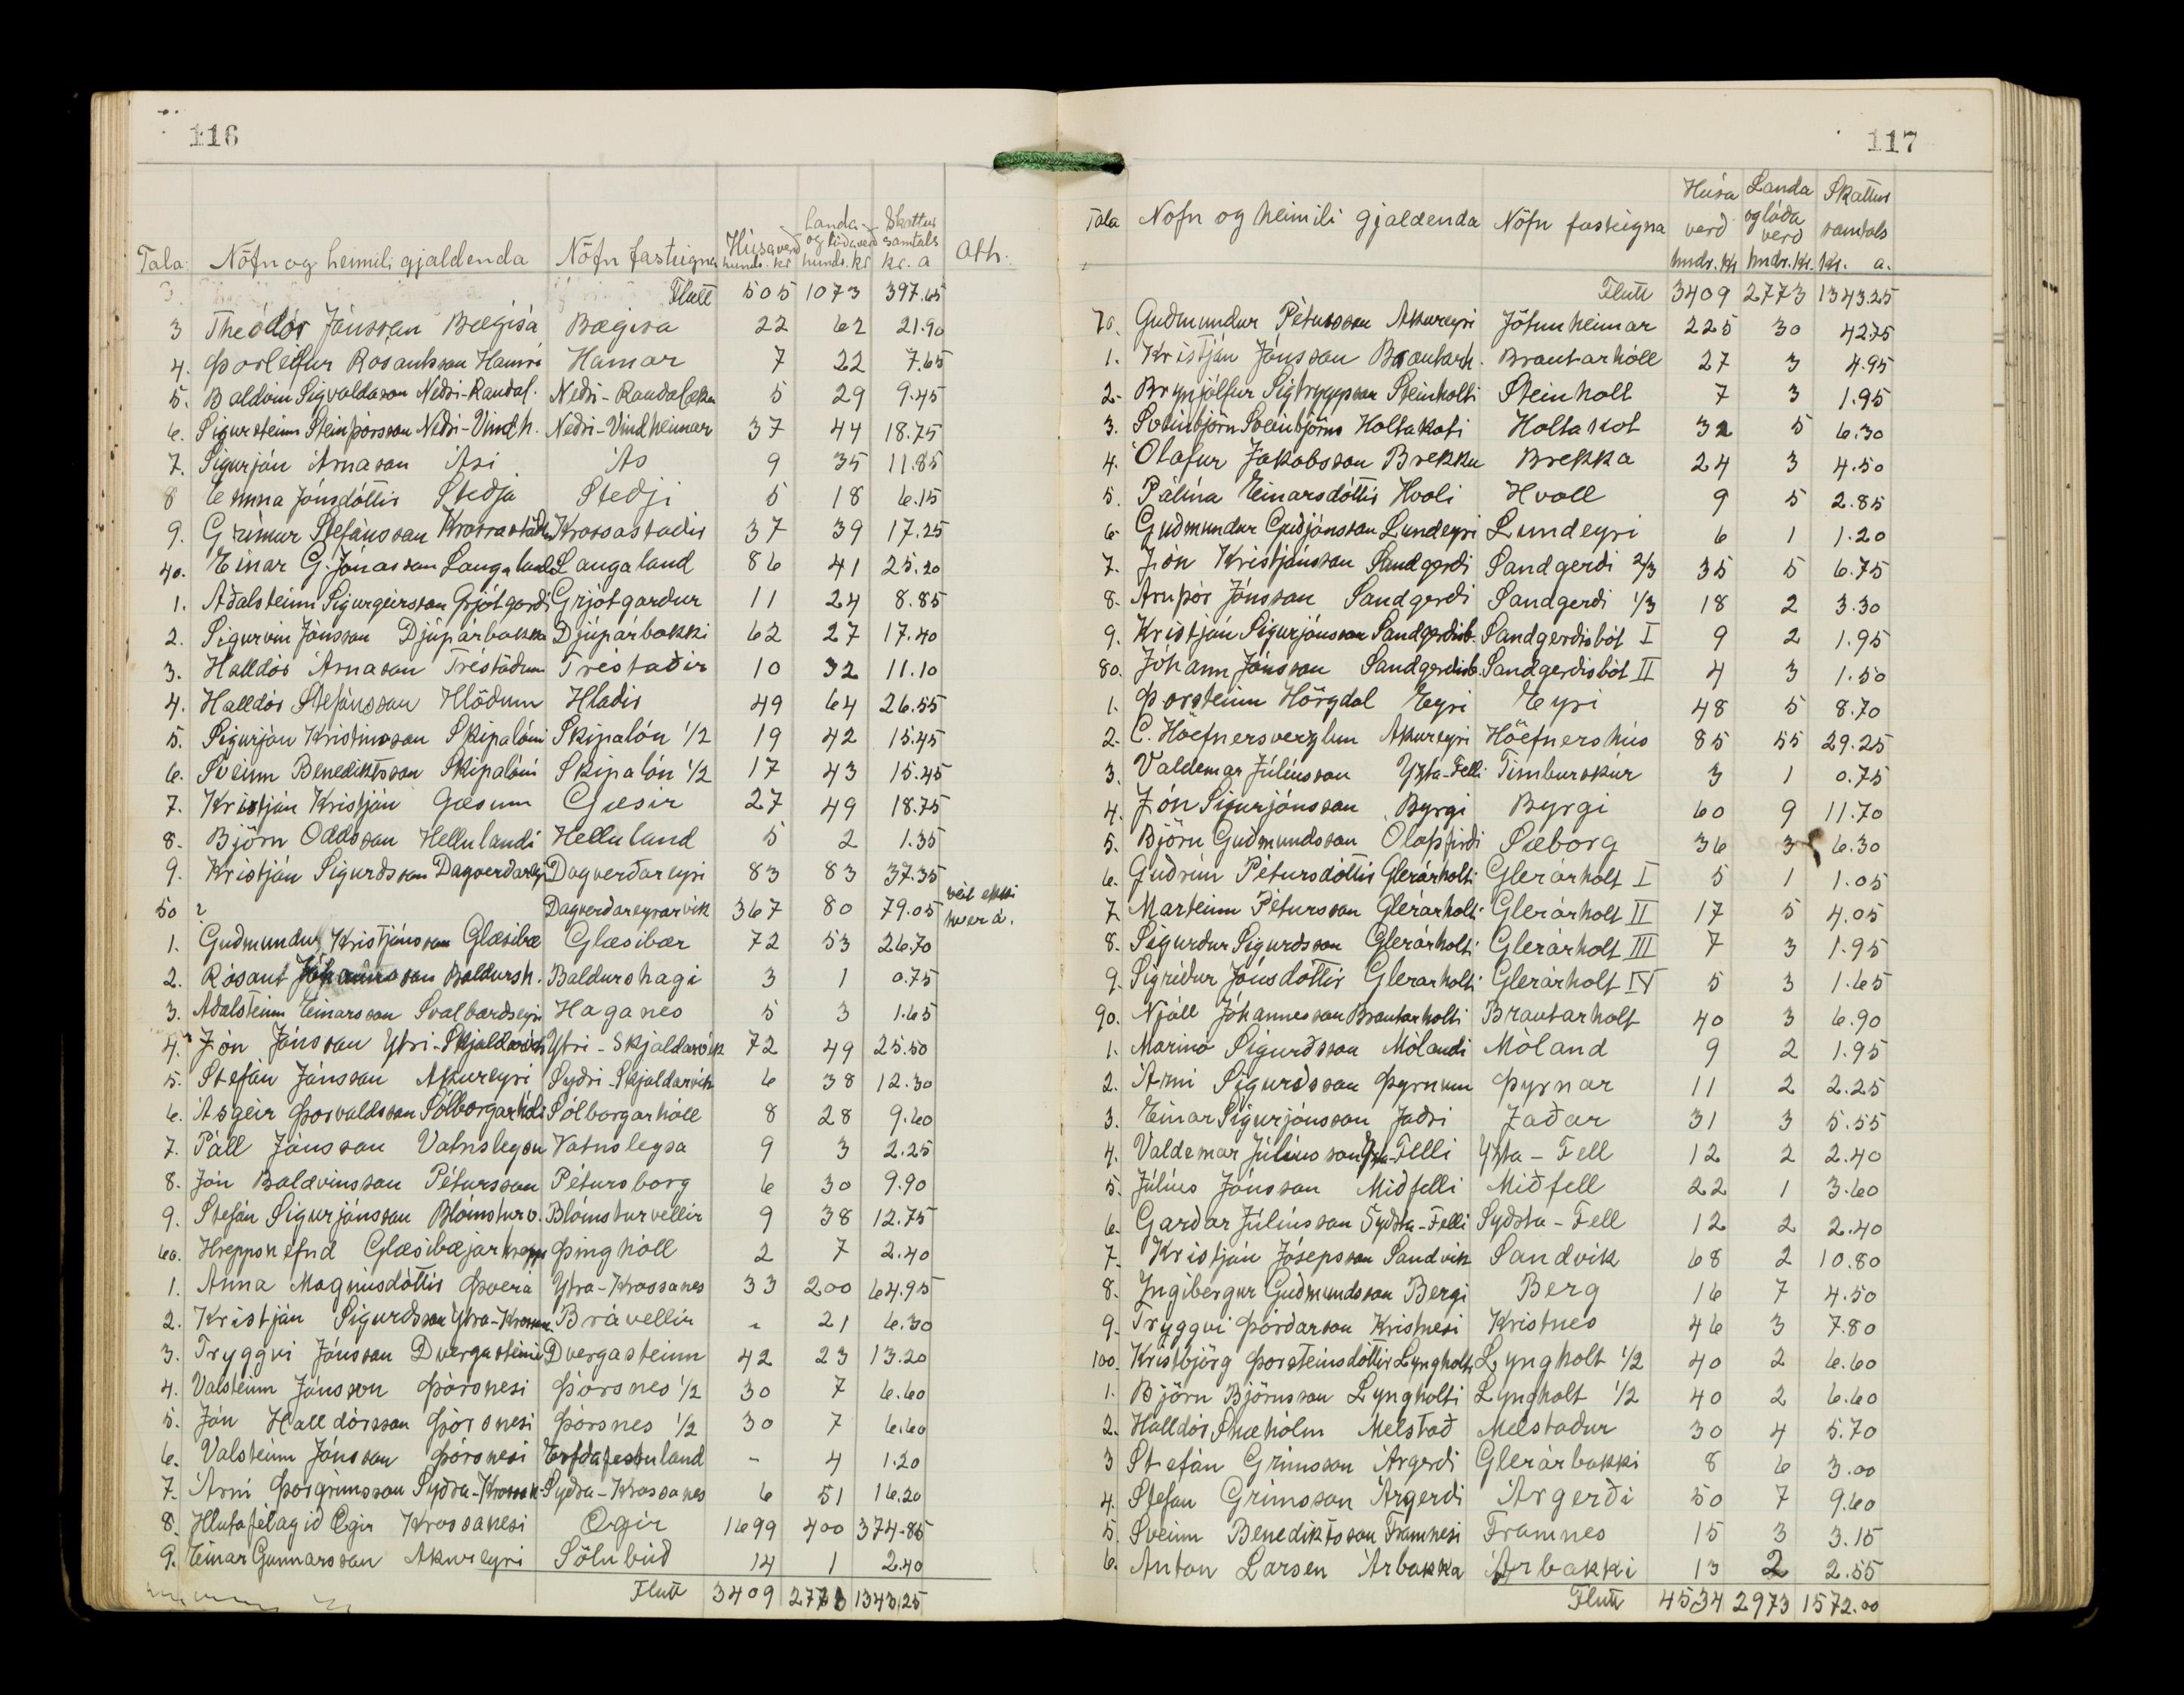 116
Tala Nöfn og heimili gjaldenda Nöfn fasteigna Húsaverð hundr. kr Landa- og lóðaverð hundr. kr Skattur samtals kr. a Ath.
Flutt 505 1073 397.65
3 Theódór Jónsson Bægisá Bægisá 22 62 21.90
4. Þorleifur Rósantsson Hamri Hamar 7 22 7.65
5. Baldvin Sigvaldason Neðri-Randal. Neðri-Randalækur 5 29 9.45
6. Sigursteinn Steinþórsson Neðri-Vindh. Neðri-Vindheimar 37 44 18.75
7. Sigurján Árnason Ási Ás 9 35 11.85
8 Emma Jónsdóttir Steðja Steðji 5 18 6.15
9. Grímur Stefánsson Krossastöðum Krossastaðir 37 39 17.25
40. Einar G. Jónasson Laugalandi Laugaland 86 41 25.20
1. Aðalsteinn Sigurgeirsson Grjótgarði Grjótgarður 11 24 8.85
2. Sigurvin Jónsson Djúpárbakka Djúpárbakki 62 27 17.40
3. Halldór Árnason Tréstöðum Tréstaðir 10 32 11.10
4. Halldór Stefánsson Hlöðum Hlaðir 49 64 26.55
5. Sigurjón Kristinsson Skipalóni Skipalón 1/2 19 42 15.45
6. Sveinn Benediktsson Skipalóni Skipalón 1/2 17 43 15.45
7. Kristján Kristján Gæsum Gæsir 27 49 18.75
8. Björn Oddsson Hellulandi Helluland 5 2 1.35
9. Kristján Sigurðsson Dagverðareyri Dagverðareyri 83 83 37.35
50 ? Dagverðareyrarvík 367 80 79.05 veit ekki hver á.
1. Guðmundur Kristjánsson Glæsibæ Glæsibær 72 53 26.70
2. Rósant Jóhannsson Baldursh. Baldurshagi 3 1 0.75
3. Aðalsteinn Einarsson Svalbarðseyri Haganes 5 3 1.65
4. Jón Jónsson Ytri-Skjaldarvík Ytri-Skjaldarvík 72 49 25.50
5. Stefán Jónsson Akureyri Syðri-Skjaldarvík 6 38 12.30
6. Ásgeir Þorvaldsson Sólborgarhóli Sólborgarhóll 8 28 9.60
7. Páll Jónsson Vatnsleysu Vatnsleysa 9 3 2.25
8. Jón Baldvinsson Pétursson Pétursborg 6 30 9.90
9. Stefán Sigurjónsson Blómsturv. Blómsturvellir 9 38 12.75
60. Hreppsnefnd Glæsibæjarhrepps Þinghóll 2 7 2.40
1. Anna Magnúsdóttir Þverá Ytra-Krossanes 33 200 64.95
2. Kristján Sigurðsson Ytra-Krossan. Brávellir - 21 6.30
3. Tryggvi Jónsson Dvergasteini Dvergasteinn 42 23 13.20
4. Valsteinn Jónsson Þórsnesi Þórsnes 1/2 30 7 6.60
5. Jón Halldórsson Þórsnesi Þórsnes 1/2 30 7 6.60
6. Valsteinn Jónsson Þórsnesi Erfðafestuland - 4 1.20
7. Árni Þorgrímsson Syðra-Krossan. Syðra-Krossanes 6 51 16.20
8. Hlutafélagið Ægir Krossanesi Ægir 1699 400 374.85
9. Einar Gunnarsson Akureyri Sölubúð 14 1 2.40
Flutt 3409 2773 1343.25
117
Tala Nöfn og heimili gjaldenda Nöfn fasteigna Húsa verð hndr. kr Landa og lóða verð hndr. kr. Skattur samtals Kr. a.
Flutt 3409 2773 1343.25
70. Guðmundur Pétursson Akureyri Jötunheimar 225 30 42.75
1. Kristján Jónsson Brautarh. Brautarhóll 27 3 4.95
2. Brynjólfur Sigtryggsson Steinholti Steinholt 7 3 1.95
3. Sveinbjörn Sveinbjörns Holtakoti Holtakot 32 5 6.30
4. Ólafur Jakobsson Brekku Brekka 24 3 4.50
5. Pálína Einarsdóttir Hvoli Hvoll 9 5 2.85
6. Guðmundur Guðjónsson Lundeyri Lundeyri 6 1 1.20
7. Jón Kristjánsson Sandgerði Sandgerði 2/3 35 5 6.75
8. Arnþór Jónsson Sandgerði Sandgerði 1/3 18 2 3.30
9. Kristján Sigurjónsson Sandgerðisb. Sandgerðisbót I 9 2 1.95
80. Jóhann Jónsson Sandgerðisb. Sandgerðisbót II 4 3 1.50
1. Þorsteinn Hörgdal Eyri Eyri 48 5 8.70
2. C. Höefnersverzlun Akureyri Höefnershús 85 55 29.25
3. Valdemar Júlíusson Yzta-Felli Timburskúr 3 1 0.75
4. Jón Sigurjónsson Byrgi Byrgi 60 9 11.70
5. Björn Guðmundsson Ólafsfirði Sæborg 36 3 6.30
6. Guðrún Pétursdóttir Glerárholti Glerárholt I 5 1 1.05
7. Marteinn Pétursson Glerárholti Glerárholt II 17 5 4.05
8. Sigurður Sigurðsson Glerárholti Glerárholt III 7 3 1.95
9. Sigríður Jónsdóttir Glerárholti Glerárholt IV 5 3 1.65
90. Njáll Jóhannesson Brautarholti Brautarholt 40 3 6.90
1. Marinó Sigurðsson Mólandi Móland 9 2 1.95
2. Árni Sigurðsson Þyrnum Þyrnar 11 2 2.25
3. Einar Sigurjónsson Jaðri Jaðar 31 3 5.55
4. Valdemar Júlíusson Yzta-Felli Yzta-Fell 12 2 2.40
5. Júlíus Jónsson Miðfelli Miðfell 22 1 3.60
6. Garðar Júlíusson Syðsta-Felli Syðsta-Fell 12 2 2.40
7. Kristján Jósepsson Sandvík Sandvík 68 2 10.80
8. Ingibergur Guðmundsson Bergi Berg 16 7 4.50
9. Tryggvi Þórðarson Kristnesi Kristnes 46 3 7.80
100. Kristbjörg Þorsteinsdóttir Lyngholti Lyngholt 1/2 40 2 6.60
1. Björn Björnsson Lyngholti Lyngholt 1/2 40 2 6.60
2. Halldór Snæhólm Melstað Melstaður 30 4 5.70
3 Stefán Grímsson Árgerði Glerárbakki 8 6 3.00
4. Stefán Grímsson Árgerði Árgerði 50 7 9.60
5. Sveinn Benediktsson Framnesi Framnes 15 3 3.15
6. Anton Larsen Árbakka Árbakki 13 2 2.55
Flutt 4534 2973 1572.00